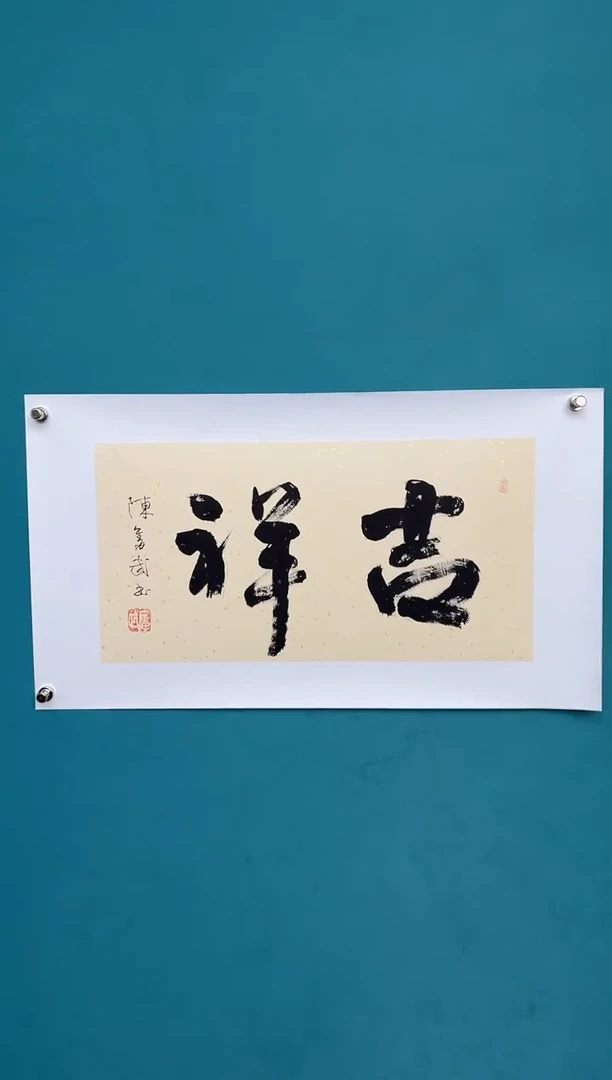 吉祥
陳勇武书